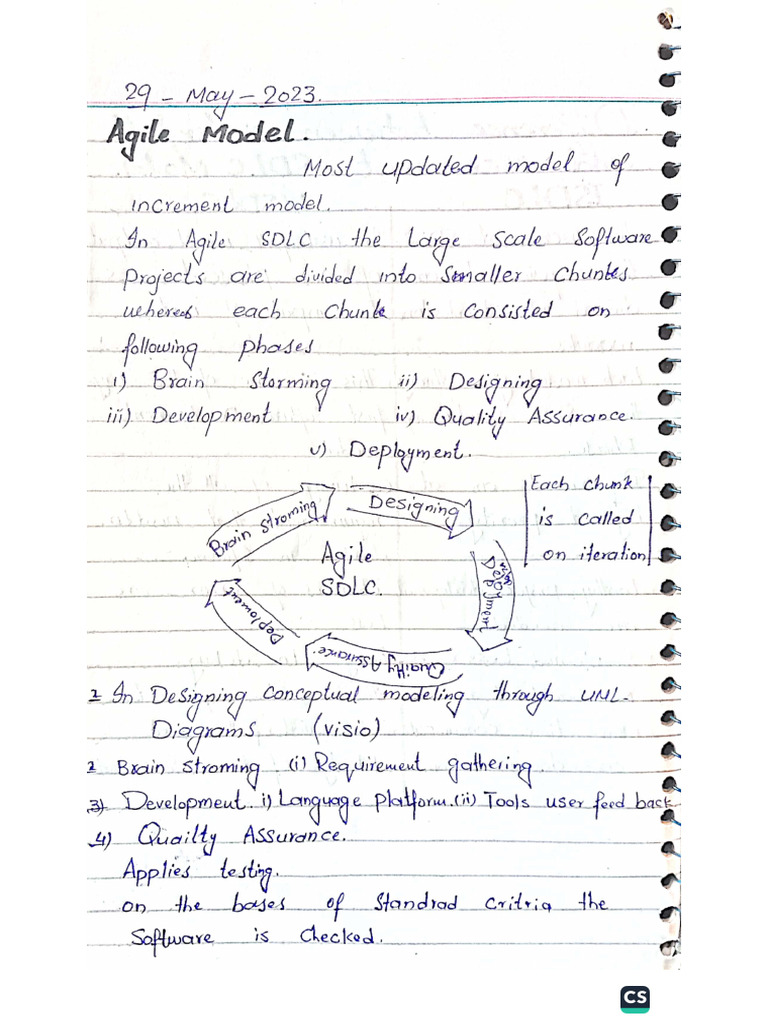 29 - May - 2023.
Agile Model.
Most updated model of
increment model.
In Agile SDLC the Large Scale Software
Projects are divided into Smaller Chunks
whereas each Chunk is Consisted on
following phases
i) Brain Storming ii) Designing
iii) Development iv) Quality Assurance.
v) Deployment.
Each chunk
is called
on iteration
Brain Stroming
Designing
Agile
SDLC.
Deployment
Quailty Assurance.
2 In Designing Conceptual modeling through UML
Diagrams (visio)
2 Brain Stroming (i) Requirement gathering.
3) Development. i) Language Platform. (ii) Tools user feed back
4) Quailty Assurance.
Applies testing.
on the bases of Standrad Critria the
Software is Checked.
CS